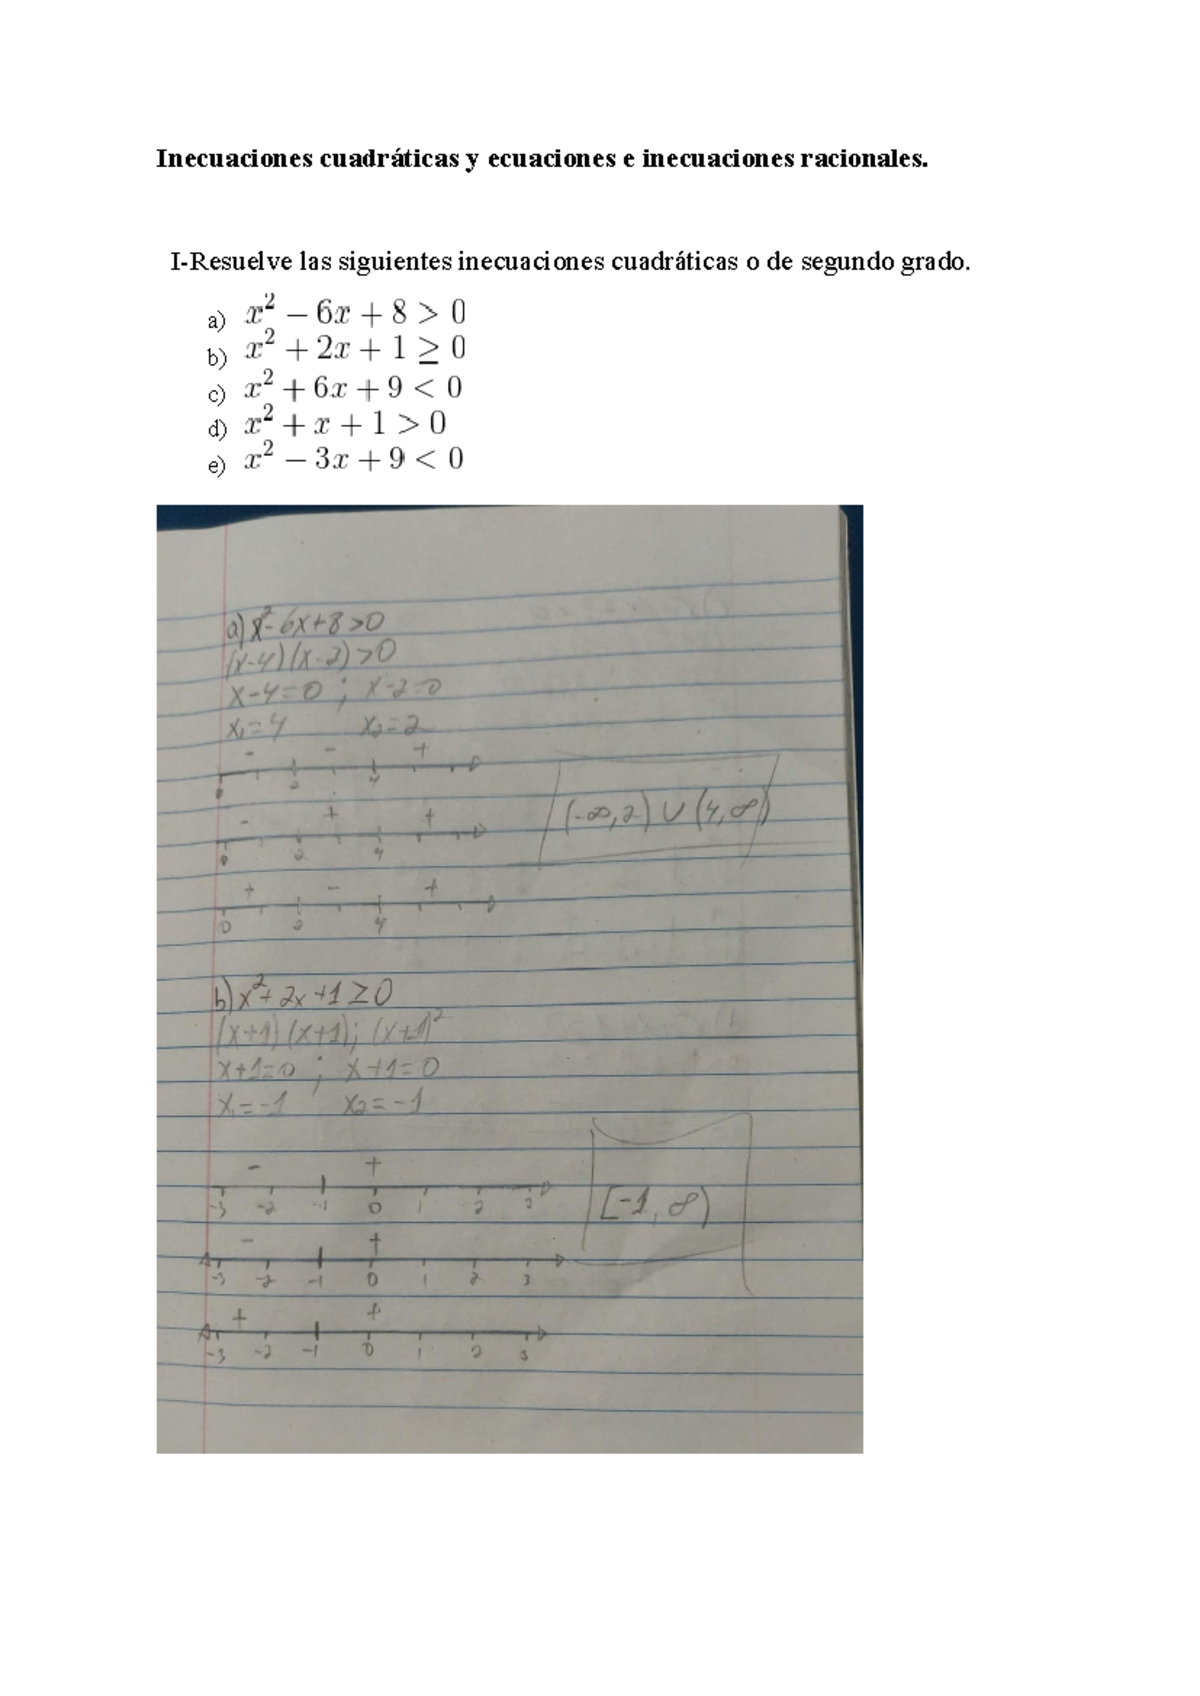 Inecuaciones cuadráticas y ecuaciones e inecuaciones racionales.
I-Resuelve las siguientes inecuaciones cuadráticas o de segundo grado.
a) x² − 6x + 8 > 0
b) x² + 2x + 1 ≥ 0
c) x² + 6x + 9 < 0
d) x² + x + 1 > 0
e) x² − 3x + 9 < 0
a) x²-6x+8>0
(x-4)(x-2)>0
x-4=0 ; x-2=0
x₁=4 x₂=2
- - +
0 2 4
(-∞,2) ∪ (4,∞)
- + +
0 2 4
+ - +
0 2 4
b) x²+2x+1≥0
(x+1)(x+1); (x+1)²
x+1=0 ; x+1=0
x₁=-1 x₂=-1
- +
-3 -2 -1 0 1 2 3
[-1,∞)
- +
-3 -2 -1 0 1 2 3
+ +
-3 -2 -1 0 1 2 3